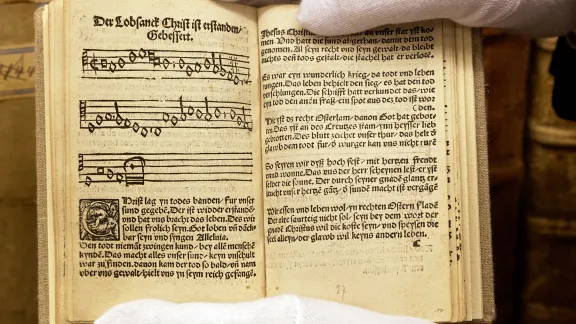 Der Lobsanck Christ ist erstanden/
Gebessert.
CHrist lag yn todes banden/ fur unser
sund gegebē. Der ist widder erstandē
vnd hat vns bracht das leben. Des wir
sollen frolich seyn. Got loben vn̄ danck
bar seyn vnd syngen Alleluia.
Den tod niemāt zwingen kund/ bey allē mensche
kyndē. Das macht alles vnser sunde/ keyn vnschult
war zu finden. danon kam der tod so bald/ vn̄ nam
vber vns gewalt/ hielt vns yn seym reich gefangē.
Jhesus Christus
men Vnd hatt die sund abgethan/ damit dem tod
genomen. Al seyn recht vnd seyn gewalt/ da bleibt
nichts den tods gestalt/ die stachel hat er verlorē.
Es war eyn wunderlich krieg/ da tod vnd leben
rungen. Das leben behielt den sieg/ es hat den tod
verschlungen. Die schrifft hatt verkundet das/ wie
eyn tod den andn fraß/ ein spot aus dez tod ist wor
(den.
Hie yst dz recht Osterlam/ danon Got hat gebot
ten. Das yst an des Creutzes stam/ ynn heysser lieb
gebrotten. Des blutt zeichet vnser thur/ das helt d
glawb dem tod fur/ d wurger kan vns nicht rurē
So feyren wir dyß hoch fest/ mit hertzen freud
vnd wonne. Das vns der herr scheynen lest/ er yst
selber die sonne. Der durch seyner gnadē glantz er
leucht vnser hertzē gātz/ d sunde macht ist vergāgē
Wir essen vnd leben wol/ yn rechten Ostern Fladē
Der alte saurteig nicht sol/ seyn bey dem wort der
gnade Christus wil die koste seyn/ vnd speysen die
seel alleyn/ der glawb wil keyns andern leben.
37